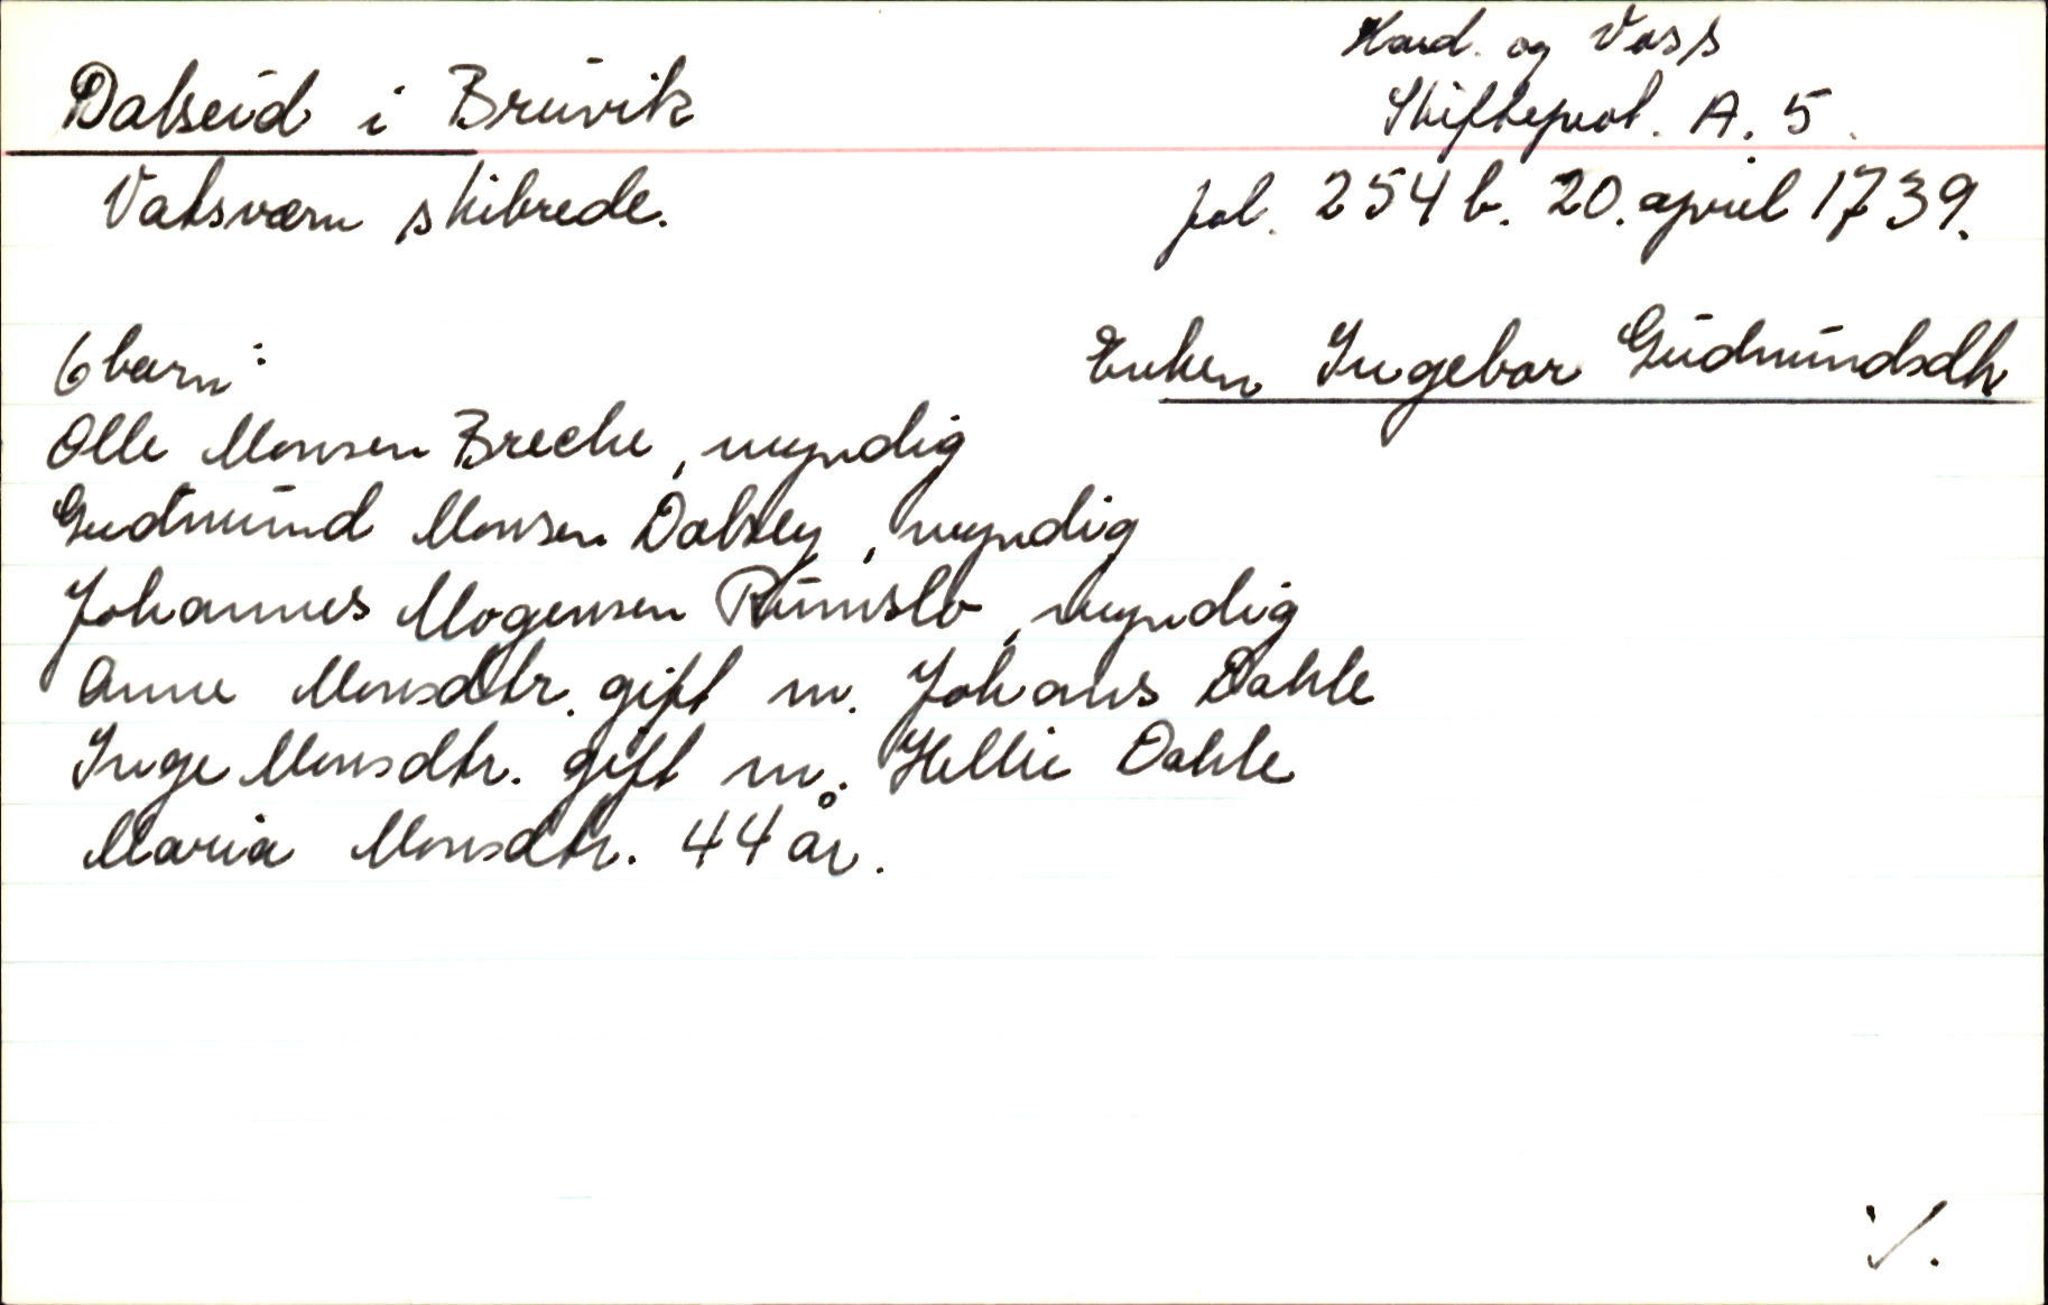 Hard. og Voss
Dalseid i Bruvik
Skifteprot. A. 5.
Vatsværn skibrede.
fol. 254 b. 20. april 1739.
6 barn:
Enken Ingebor Gudmundsdtr
Olle Monsen Breche, myndig
Gudmund Monsen Dalsey, myndig
Johannes Mogensen Rumslo, myndig
Anne Monsdtr. gift m. Johans Dahle
Inge Monsdtr. gift m. Hellie Dahle
Maria Monsdtr. 44 år.